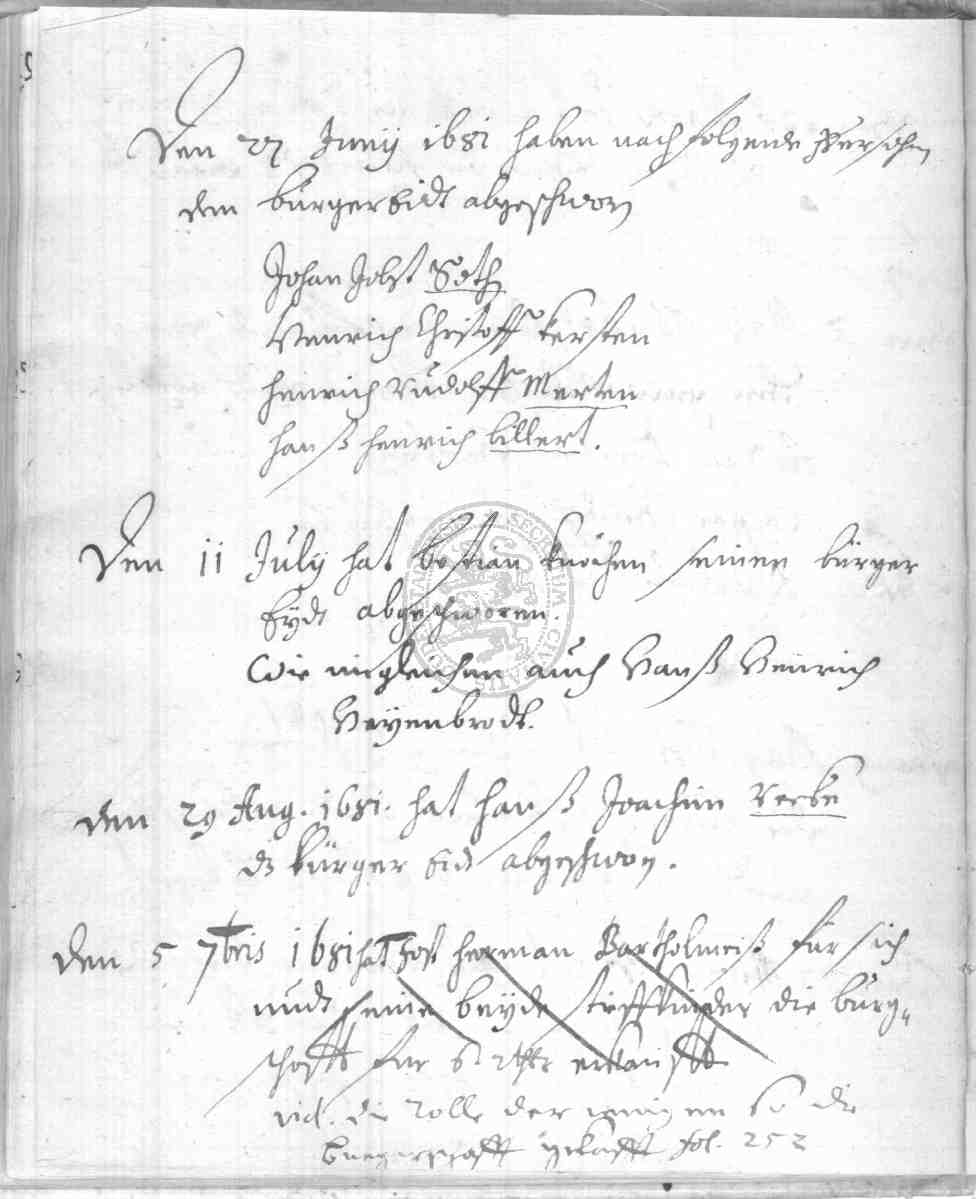 Den 27 Junij 1681 haben nach folgende Persohn
den bürger Eidt abgeschworn
Johan Jobst Soth
Henrich Christoff Kersten
Henrich Rudolff Merten
Hanß Henrich Lillert.
Den 11 July hat Bastian Knöchen seinen bürger
Eydt abgeschworen
Wie ingleichen auch Hanß Heinrich
Heyenbrodt.
den 29 Aug. 1681. hat Hanß Joachim
dz bürger Eidt abgeschworn.
den 5 7bris 1681 hat Jost Herman Bartholmeiß für sich
undt seine beyde stieffkinder die bürg„
schafft für rthlr erkaufft
vid. die Rolle der jenigen so die
buergerschafft gekaufft fol. 252
SECRETUM CIVITATIS